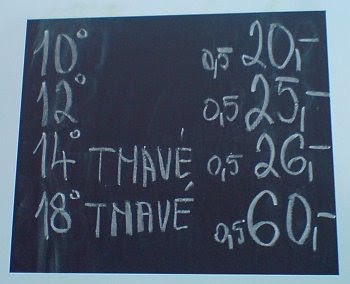 10° 0,5 20,-
12° 0,5 25,-
14° TMAVÉ 0,5 26,-
18° TMAVÉ 0,5 60,-